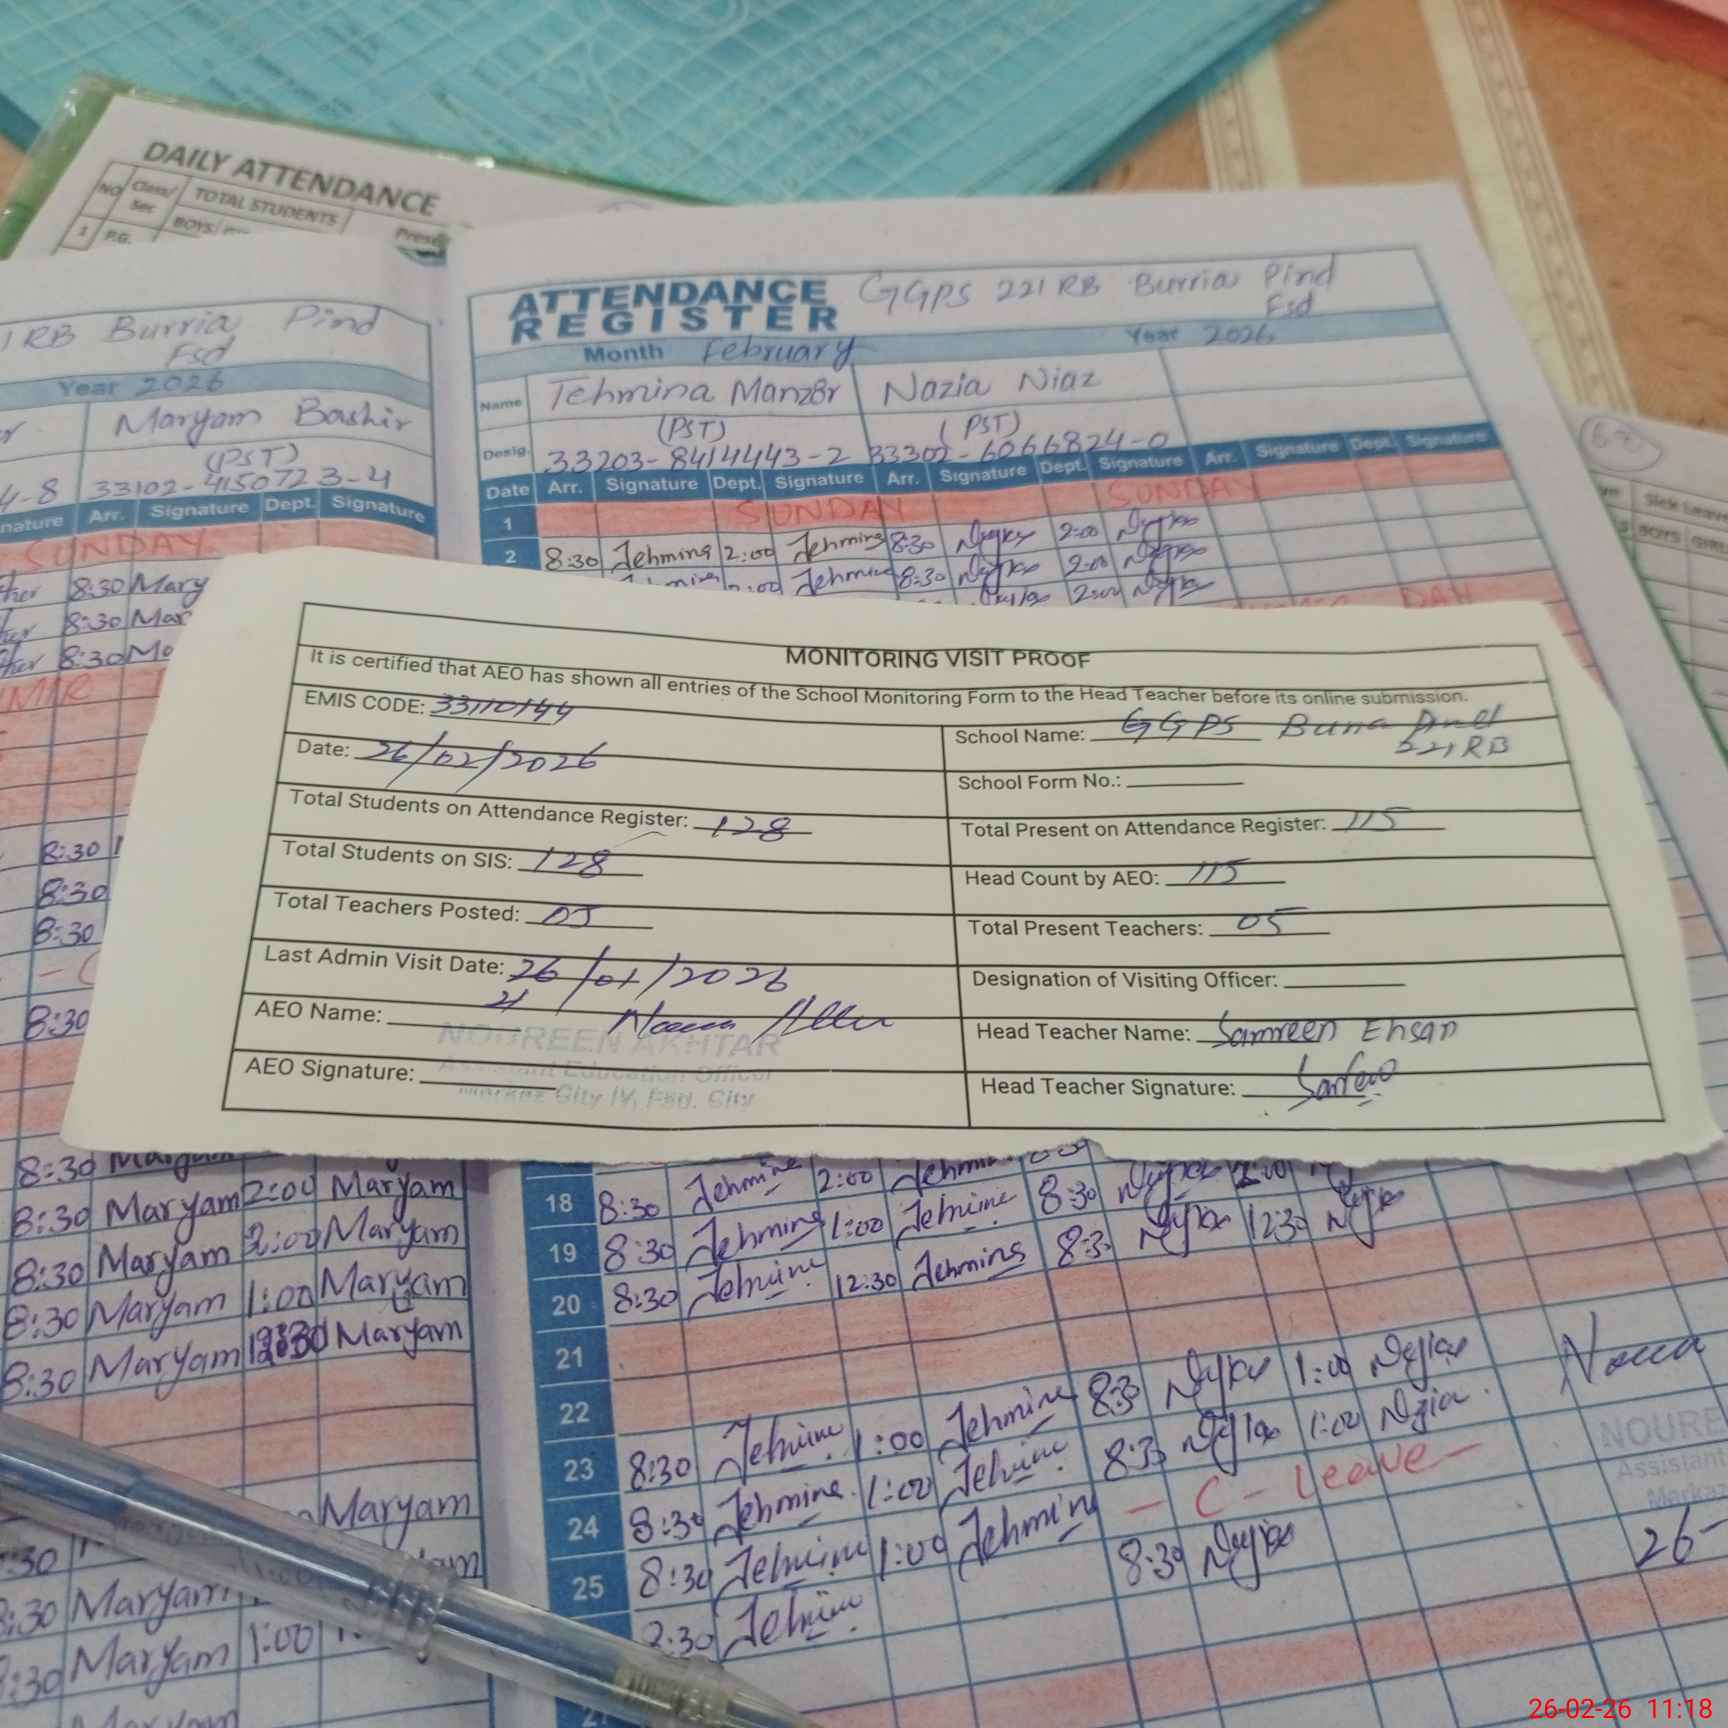 DAILY ATTENDANCE
NO Class/ Sec TOTAL STUDENTS
BOYS
1 P.G.
1 RB Burria Pind
Fsd
Year 2026
Maryam Bashir
(PST)
4-8 33102-4150723-4
nature Arr. Signature Dept. Signature
SUNDAY
8:30 Mary
8:30 Mar
8:30 Ma
8:30
8:30
8:30
8:30
ATTENDANCE REGISTER GGPS 221 RB Burria Pind
Fsd
Month February Year 2026
Name Tehmina Manzor Nazia Niaz
Desig. (PST) (PST)
33203-8414443-2 33302-6066824-0
Date Arr. Signature Dept. Signature Arr. Signature Dept. Signature Arr. Signature Dept. Signature
1 SUNDAY SUNDAY
2 8:30 Tehmina 2:00 Tehmina 8:30 2:00
8:30 2:00
2:00
DAY
MONITORING VISIT PROOF
It is certified that AEO has shown all entries of the School Monitoring Form to the Head Teacher before its online submission.
EMIS CODE: 33110144 School Name: GGPS Burria Pind
221 RB
Date: 26/02/2026 School Form No.:
Total Students on Attendance Register: 128 Total Present on Attendance Register: 115
Total Students on SIS: 128 Head Count by AEO: 115
Total Teachers Posted: 05 Total Present Teachers: 05
Last Admin Visit Date: 26/01/2026 Designation of Visiting Officer:
21
AEO Name: Head Teacher Name: Samreen Ehsan
NOUREEN AKHTAR
Assistant Education Officer
Markaz City IV, Fsd. City
AEO Signature: Head Teacher Signature:
8:30 Maryam
8:30 Maryam 2:00 Maryam
8:30 Maryam 2:00 Maryam
8:30 Maryam 1:00 Maryam
8:30 Maryam 12:30 Maryam
Maryam
:30
8:30 Maryam
8:30 Maryam 1:00
Maryam
18 8:30 Tehmina 2:00 Tehmina
19 8:30 Tehmina 1:00 Tehmina 8:30 2:00
20 8:30 Tehmina 12:30 Tehmina 8:30 12:30
21
22
23 8:30 Tehmina 1:00 Tehmina 8:30 1:00
24 8:30 Tehmina 1:00 Tehmina 8:30 1:00 Nazia
25 8:30 Tehmina 1:00 Tehmina - C - Leave -
8:30 Tehmina 8:30
27
NOURE
Assistant
Markaz
26-
BOYS
26-02-26 11:18